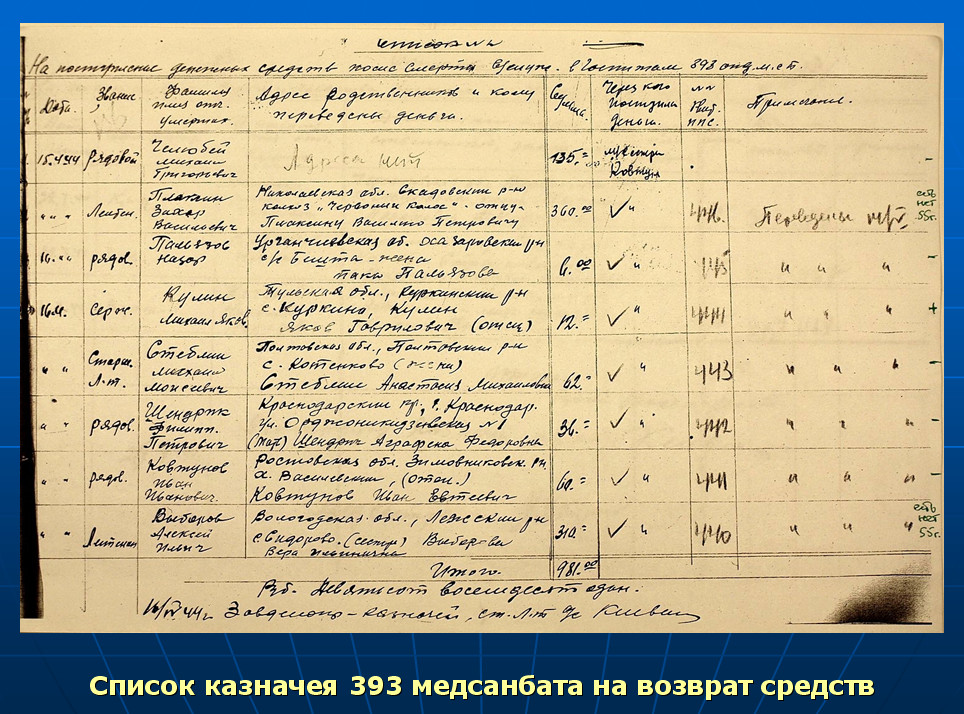 На поступление денежных средств после смерти в госпитале 393 отд. м.с.б.
Дата. Звание Фамилия имя отч. умерших. Адрес родственников и кому переведены деньги. Сумма. Через кого поступили деньги. NN квит. ППС. Примечание.
15.4.44 рядовой Челюбей Михаил Григорьевич 135.=
" " Лейтен. Плаксин Захар Васильевич Николаевская обл. Скадовский р-н колхоз "Червоний колос" - отцу - Плаксину Василию Петровичу 360.00 ✓ " 446. Переведены есть нет 55г.
16. " " рядов. Пальязов Назар с/с Бишта - жена Пальязова 6.00 ✓ " 445 " " " -
16.4. серж. Кулин Михаил Яков. Тульская обл., Куркинский р-н с. Куркино, Кулин Яков Гаврилович (отец) 12.= ✓ " 444 " " " +
" " Старш. Л-т. Стеблин Михаил Моисеевич Полтавская обл., Полтавский р-н с. Котенково (жена) Стеблин Анастасия Михайловна 62.= ✓ " 443 " " " -
" " рядов. Шендрик Филипп Петрович Краснодарский кр., г. Краснодар. ул. Орджоникидзевская №1 (мат) Шендрик Аграфена Федоровна 36.= ✓ " 442 " " " -
" " рядов. Ковтунов Иван Иванович. Ростовская обл. Зимовниковск. р-н х. Василевский, (отец.) Ковтунов Иван Евтеевич 60.= ✓ " 441 " " " -
" " Лейтенан Выборов Алексей Ильич Вологодская обл., Лежский р-н с Сидорово. (сестра) Выборова Вера Ильинична 310.= ✓ " 440 " " " есть нет 55г.
Итого. 981.00
Руб. Девятьсот восемьдесят один.
Завделопр-казначей, ст. Л-т
Список казначея 393 медсанбата на возврат средств